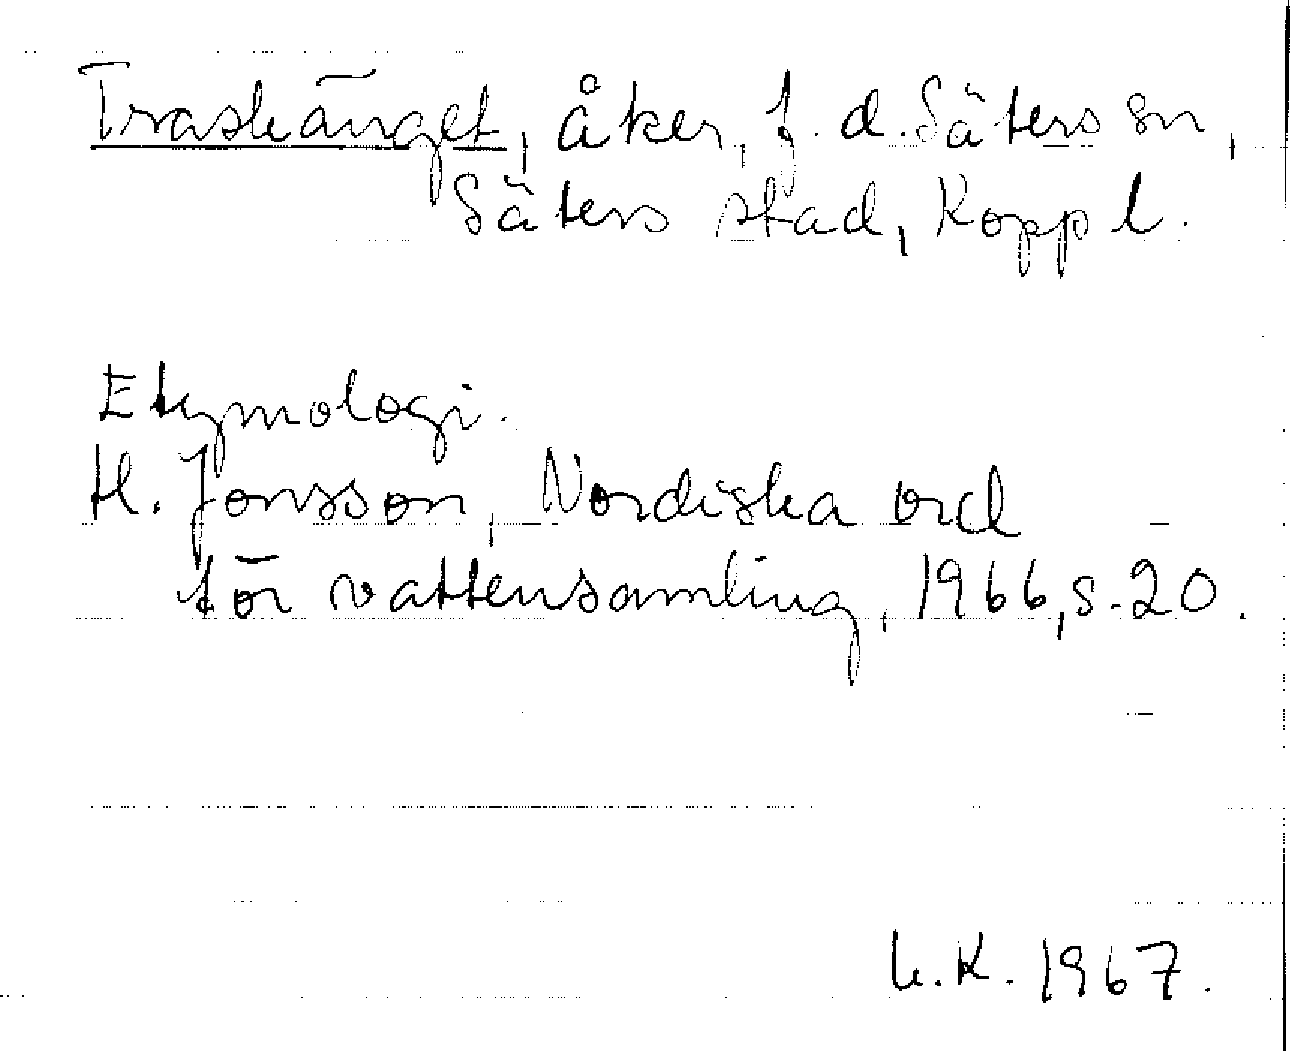 Traskänget, åker, f.d. Säters sn,
Säters stad, Kopp l.
Etymologi.
H. Jonsson, Nordiska ord
för vattensamling, 1966, s. 20.
L.K. 1967.